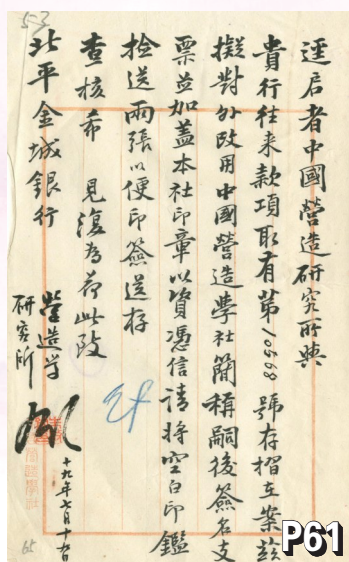 53
逕启者中國營造研究所與
貴行往来款項取有第10568號存摺在案茲
擬對外改用中國營造學社簡稱嗣後簽名支
票並加蓋本社印章以資憑信請將空白印鑑
捡送兩張以便印簽送存
查核希 見復為荷此致
北平金城銀行
營造学
研究所
十九年七月十九日
65
P61